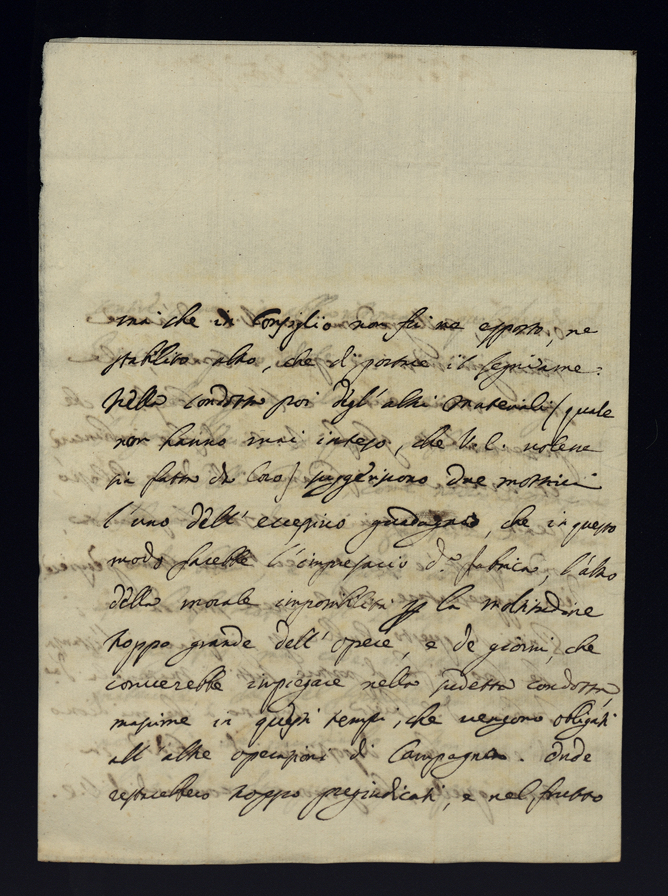 mai che in Consiglio non fu ne esposto, ne
stabilito altro, che di portare il legname:
Nella condotta poi degl'altri materiali (quale
non hanno mai inteso, che V.E. voleva
sia fatta da loro) suggeriscono due motivi
l'uno dell'eccessivo guadagno, che in questo
modo farebbe l'impresario d.ª fabrica, l'altro
della morale impossibilita per la moltitudine
troppo grande dell'opere, e de giorni, che
converebbe impiegare nella sudetta condotta,
masime in questi tempi, che vengono obligati
all'altre operazioni di Campagna. Onde
restarebbero troppo pregiudicati, e nel frutto